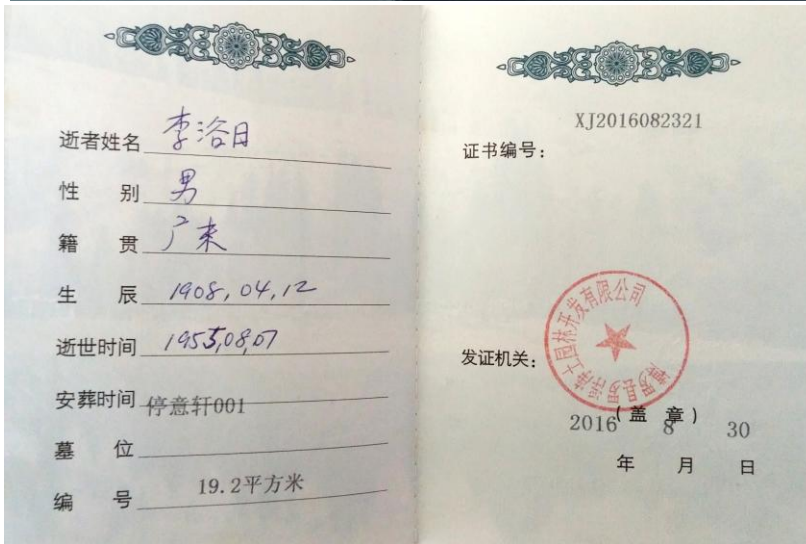 逝者姓名 李浴日
性 别 男
籍 贯 广东
生 辰 1908,04,12
逝世时间 1955,08,07
安葬时间 停意轩001
墓 位
编 号 19.2平方米
XJ2016082321
证书编号:
发证机关:
(盖 章)
2016 8 30
年 月 日